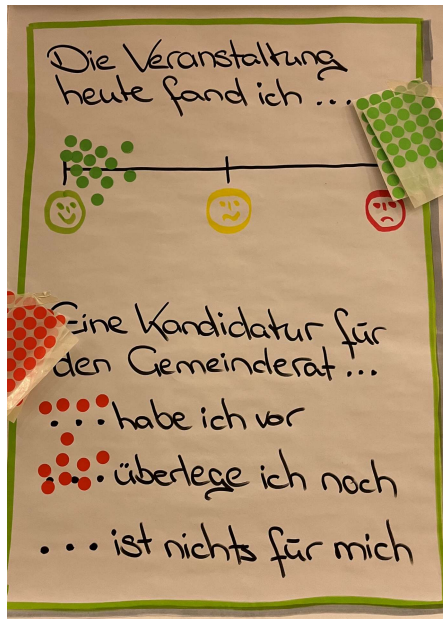 Die Veranstaltung
heute fand ich ...
Eine Kandidatur für
den Gemeinderat ...
... habe ich vor
... überlege ich noch
... ist nichts für mich